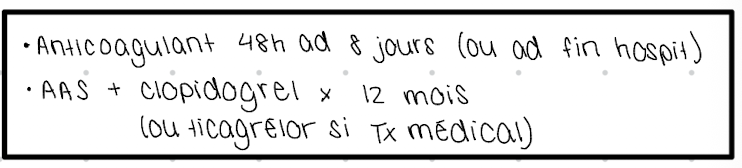 • Anticoagulant 48h ad 8 jours (ou ad fin hospit)
• AAS + clopidogrel x 12 mois
(ou ticagrélor si Tx médical)